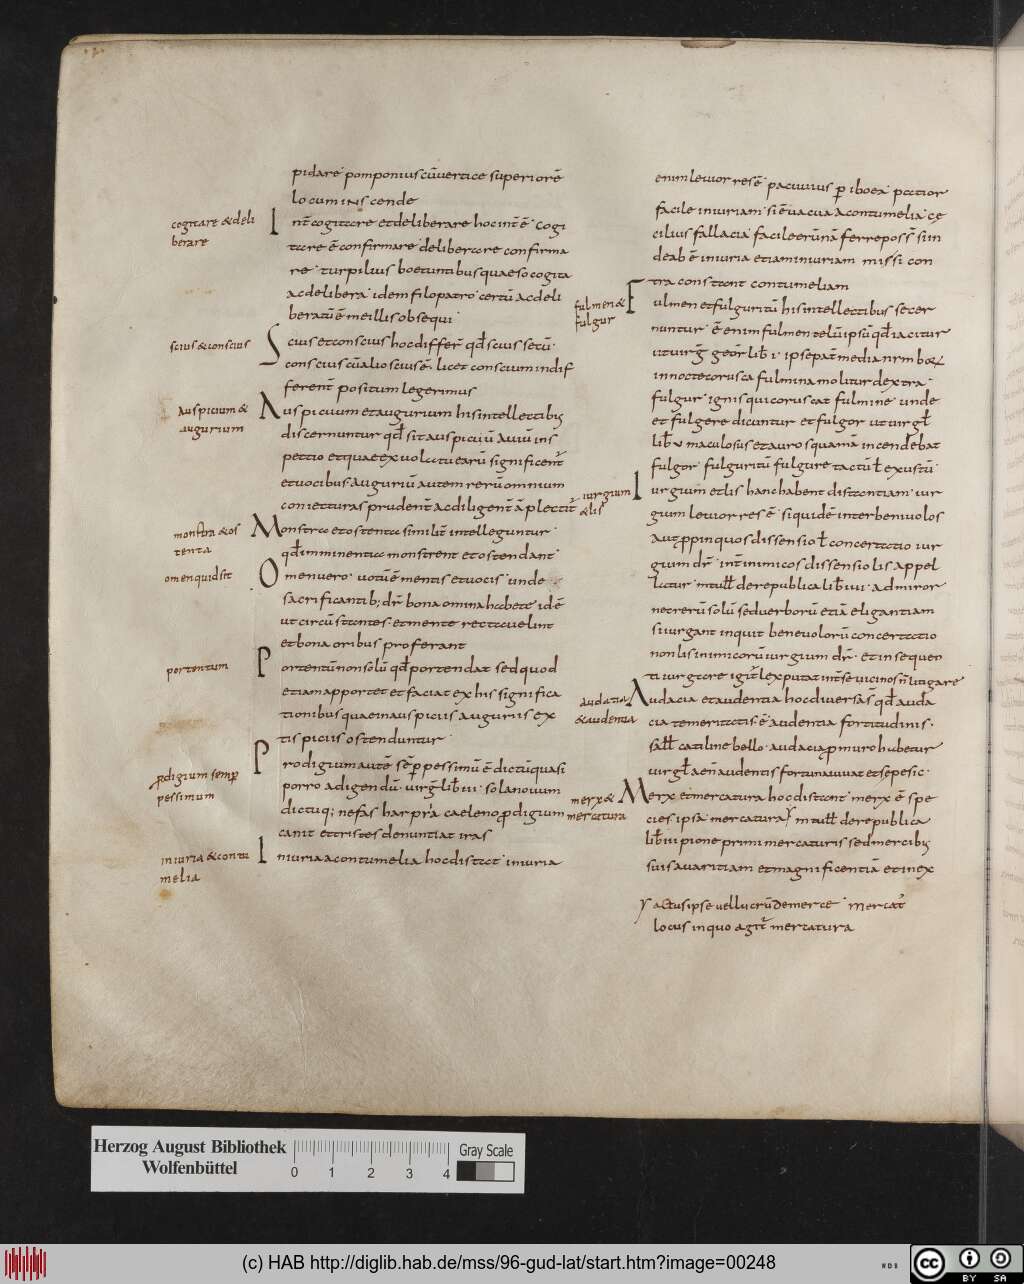 pidare pomponius cū uertice superiorē
locum inscende
cogitare & deli
berare
Int̄ cogitare et deliberare hoc int̄ ē · cogi
tare ē confirmare deliberare confirma
re · turpilius boetuntibus quaeso cogita
ac delibera · idem filopatro · certū ac deli
beratū ē me illis obsequi ·
scius & conscius
Scius et conscius hoc differt̄ qđ scius secū ·
conscius cū alio scius ē · licet conscium indif
ferent̄ positum legerimus
Auspicium &
augurium
Auspicium et augurium his intellectibus
discernuntur qđ sit auspiciū auiū ins
pectio et quae ex uolatu earū significent̄
et uocibus · auguriū autem rerū omnium
coniecturas prudent̄ ac diligent̄ āplectit̄
monstra & os
tenta
Monstra et ostenta similit̄ intelleguntur ·
qđ imminentia monstrent et ostendant ·
omen quid sit
Omen uero · uotū ē mentis et uocis · unde
sacrificantib; dr̄ bona omina habete idē
ut circūstantes et mente recta uelint
et bona oribus proferant
portentum
Portentū non solū qđ portendat sed quod
etiam apportet et faciat ex his significa
tionibus quae in auspiciis auguriis ex
tispiciis ostenduntur ·
ꝓdigium semꝑ
pessimum
Prodigium autē sēꝑ pessimū ē dictū quasi
porro adigendū · uirḡ lib̄ iii · sola nouum
dictuq; nefas harpyia caeleno ꝓdigium
canit et tristes denuntiat iras
iniuria & contu
melia
Iniuria a contumelia hoc distat · iniuria
enim leuior res ē · pacuuius ꝑiboea · patior
facile iniuriam · si ē uacua a contumelia · ce
cilius fallacia facile erūnā ferre possū̄ si in
de ab ē iniuria etiam iniuriam missi con
tra constant contumeliam
fulmen &
fulgur
Fulmen et fulguritū his intellectibus secer
nuntur · ē enim fulmen telū ipsū qđ iacitur
ut uirḡ geor̄ lib̄ i · ipse pat̄ media nimborꝝ
in nocte corusca fulmina molitur dextra ·
fulgur · ignis qui coruscat fulmine · unde
et fulgere dicuntur et fulgor ut uirgł
lib̄ v maculosus et auro squamā incendebat
fulgor · fulguritū fulgure tactū ł exustū ·
iurgium
& lis
Iurgium et lis hanc habent distantiam · iur
gium leuior res ē · siquidē inter beniuolos
aut ꝓpinquos dissensio ł concertatio iur
gium dr̄ · int̄ inimicos dissensio lis appel
latur · m tull̄ de republica lib̄ iiii · admiror
nec rerū solū sed uerborū etiā eligantiam
si iurgant inquit beneuolorū concertatio
non lis inimicorū iurgium dr̄ · et in sequen
ti iurgare igit̄ lex putat int̄ se uicinos n̄ litigare
audatia
& audentia
Audacia et audentia hoc diuersas̄ qđ auda
cia temeritatis ē audentia fortitudinis ·
sall̄ catiline bello · audacia ꝓ muro habetur
uirgł aen̄ audentis fortuna iuuat et sepe sic ·
merx &
mercatura
Merx et mercatura hoc distant · merx ē spe
cies ipsa · mercatura γ m tull̄ de republica
lib̄ iii pione primi mercaturis sed mercibus
suis auaritiam et magnificentiā et inex
γ actus ipse uel lucrū de merce · mercat̄
locus in quo agit̄ mercatura
Herzog August Bibliothek
Wolfenbüttel
0 1 2 3 4
Gray Scale
(c) HAB http://diglib.hab.de/mss/96-gud-lat/start.htm?image=00248
WDB
cc BY SA